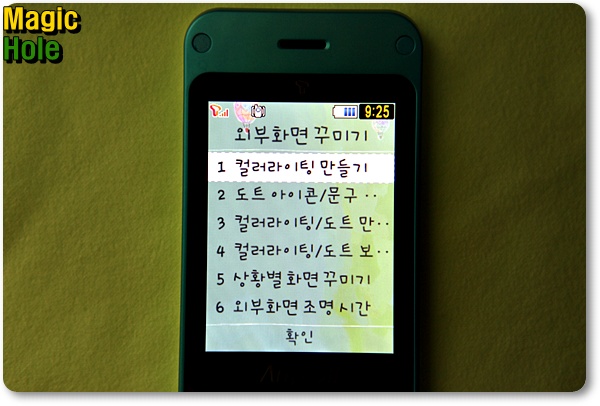 Magic
Hole
9:25
외부화면 꾸미기
1 컬러라이팅 만들기
2 도트 아이콘/문구 ··
3 컬러라이팅/도트 만··
4 컬러라이팅/도트 보··
5 상황별 화면 꾸미기
6 외부화면 조명 시간
확인